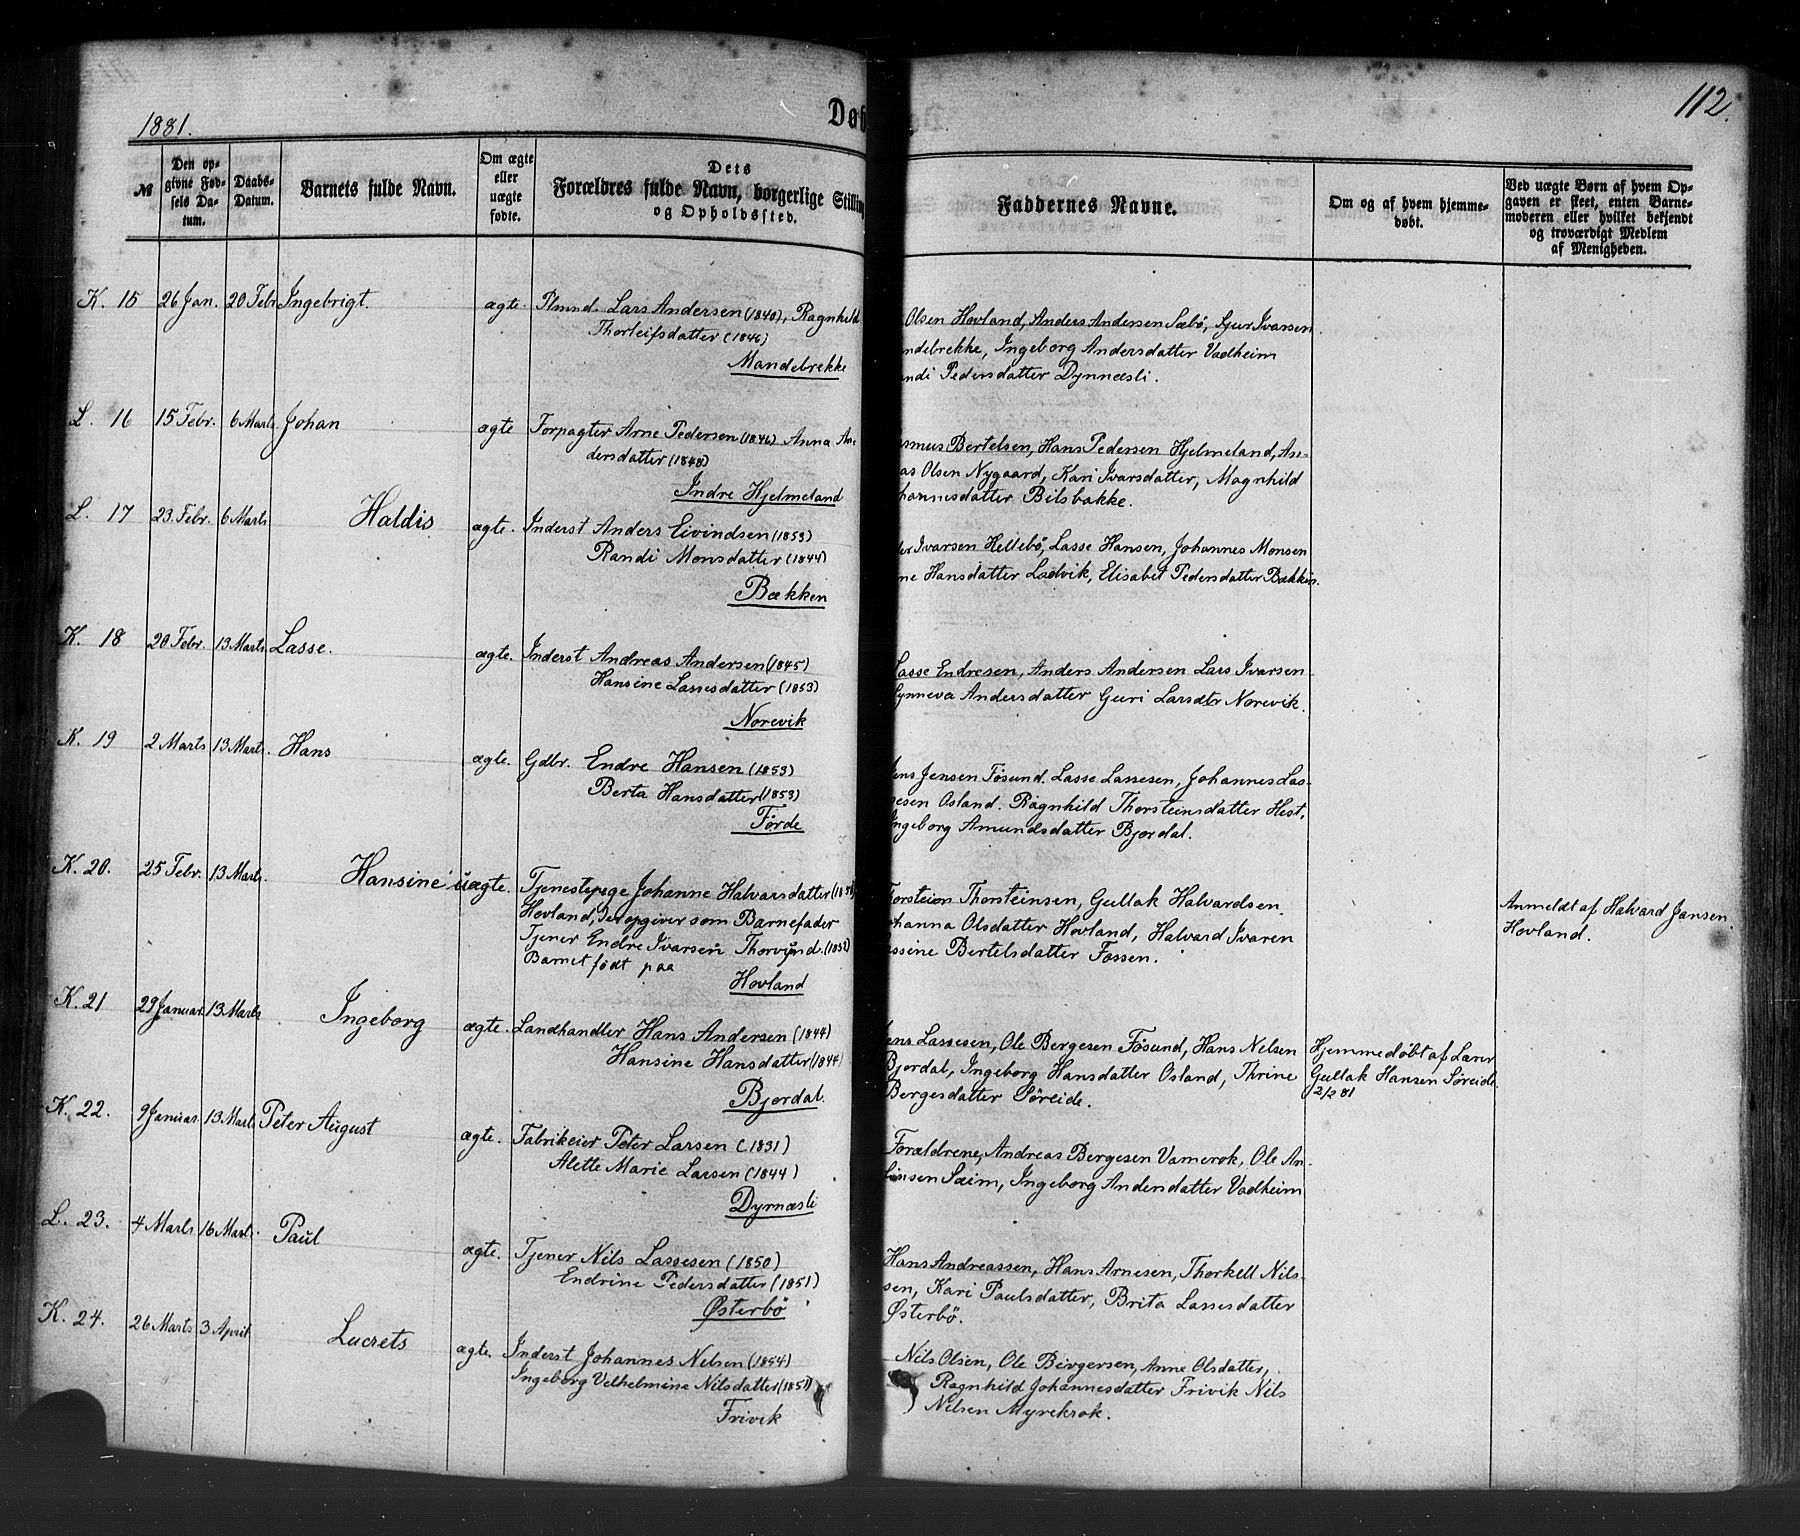 1881.
Døb
112.
№
Den op-
givne Fød-
sels Da-
tum.
Daabs-
Datum.
Barnets fulde Navn.
Om ægte
eller
uægte
fødte.
Dets
Forældres fulde Navn, borgerlige Stilling
og Opholdssted.
Faddernes Navne.
Om og af hvem hjemme-
døbt.
Ved uægte Børn af hvem Op-
gaven er skeet, enten Barne-
moderen eller hvilket bekjendt
og troværdigt Medlem
af Menigheden.
K. 15 26 Jan. 20 Febr Ingebrigt. ægte. Plmnd. Lars Andersen (1840), Ragnhild
Thorleifsdatter (1846)
Mandebrekke
Olsen Hovland, Anders Andersen Sæbö, Sjur Ivarsen
ndebrekke, Ingeborg Andersdatter Vadheim
ndi Pedersdatter Dynnæsli.
L. 16 15 Febr. 6 Marts Johan ægte Forpagter Arne Pedersen (1846) Anna An-
dersdatter (1848)
Indre Hjelmeland
smus Bertelsen, Hans Pedersen Hjelmeland, An-
as Olsen Nygaard, Kari Ivarsdatter, Magnhild
hannesdatter Bilsbakke.
L. 17 23. Febr. 6 Marts Haldis ægte. Inderst Anders Eivindsen (1853)
Randi Monsdatter (1844)
Bækken
er Ivarsen Hellebö, Lasse Hansen, Johannes Monsen
ne Hansdatter Ladvik, Elisabet Pedersdatter Bækken.
K. 18 20 Febr. 13 Marts Lasse. ægte. Inderst Andreas Andersen (1845)
Hansine Lassesdatter (1853)
Norevik
Lasse Endresen, Anders Andersen Lars Ivarsen
Synneva Andersdatter Guri Larsdtr Norevik.
K. 19 2 Marts 13 Marts. Hans ægte. Gdbr. Endre Hansen (1853)
Berta Hansdatter (1853)
Förde
Jens Jensen Fösund. Lasse Lassesen, Johannes Las-
sesen Osland. Ragnhild Thorsteinsdatter Hest,
Ingeborg Amundsdatter Bjordal.
K. 20. 25 Febr. 13 Marts. Hansine uægte. Tjenestepige Johanne Halvarsdatter
Hovland, der opgiver som Barnefader
Tjener Endre Ivarsen Thorvund. (1852)
Barnet födt paa
Hovland
Torsteinn Thorsteinsen, Gullak Halvardsen
ohanna Olsdatter Hovland, Halvard Ivaren
ssine Bertelsdatter Fossen.
Anmeldt af Halvard Jansen
Hovland.
K. 21 29 Januar. 13 Marts Ingeborg ægte. Landhandler Hans Andersen (1844)
Hansine Hansdatter (1844)
Bjordal.
Jens Lassesen, Ole Bergesen Fösund, Hans Nelsen
Bjordal, Ingeborg Hansdatter Osland, Thrine
Bergesdatter Söreide.
Hjemmedöbt af Lærer
Gullak Hansen Söreide
2/2 81
K. 22. 9 Januar. 13 Marts Peter August ægte. Fabrikeier Peter Larsen (1831)
Alette Marie Larsen (1844)
Dyrnæsli
Forældrene, Andreas Bergesen Vamerok, Ole An-
Sæim, Ingeborg Andersdatter Vadheim
L. 23. 4 Marts 16 Marts. Paul ægte. Tjener Nils Lassesen (1850)
Endrine Pedersdatter (1851)
Østerbö
Hans Andreassen, Hans Arnesen, Thorkell Nils-
sen, Kari Paulsdatter, Brita Lassesdatter
Østerbö.
K. 24. 26 Marts 3 April Lucrets ægte. Inderst Johannes Nelsen (1854)
Ingeborg Velhelmine Nilsdatter (1857)
Frivik
Nils Olsen, Ole Birgersen, Anne Olsdatter,
Ragnhild Johannesdatter Frivik Nils
Nelsen Myrekrok.